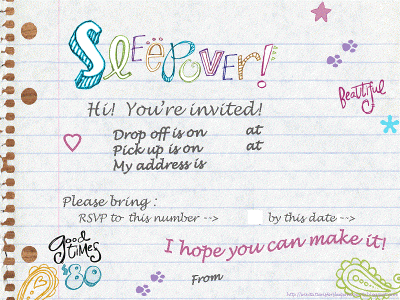 Sleepover!
Hi! You're invited!
beautiful
Drop off is on at
Pick up is on at
My address is
Please bring :
RSVP to this number --> by this date -->
good times
'80
I hope you can make it!
From